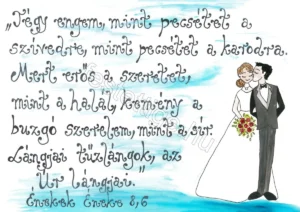 „Tégy engem, mint pecsétet a
szívedre, mint pecsétet a karodra.
Mert erős a szeretet,
mint a halál, kemény a
buzgó szerelem, mint a sír.
Lángjai tűzlángok, az
Úr lángjai."
Énekek Éneke 8,6